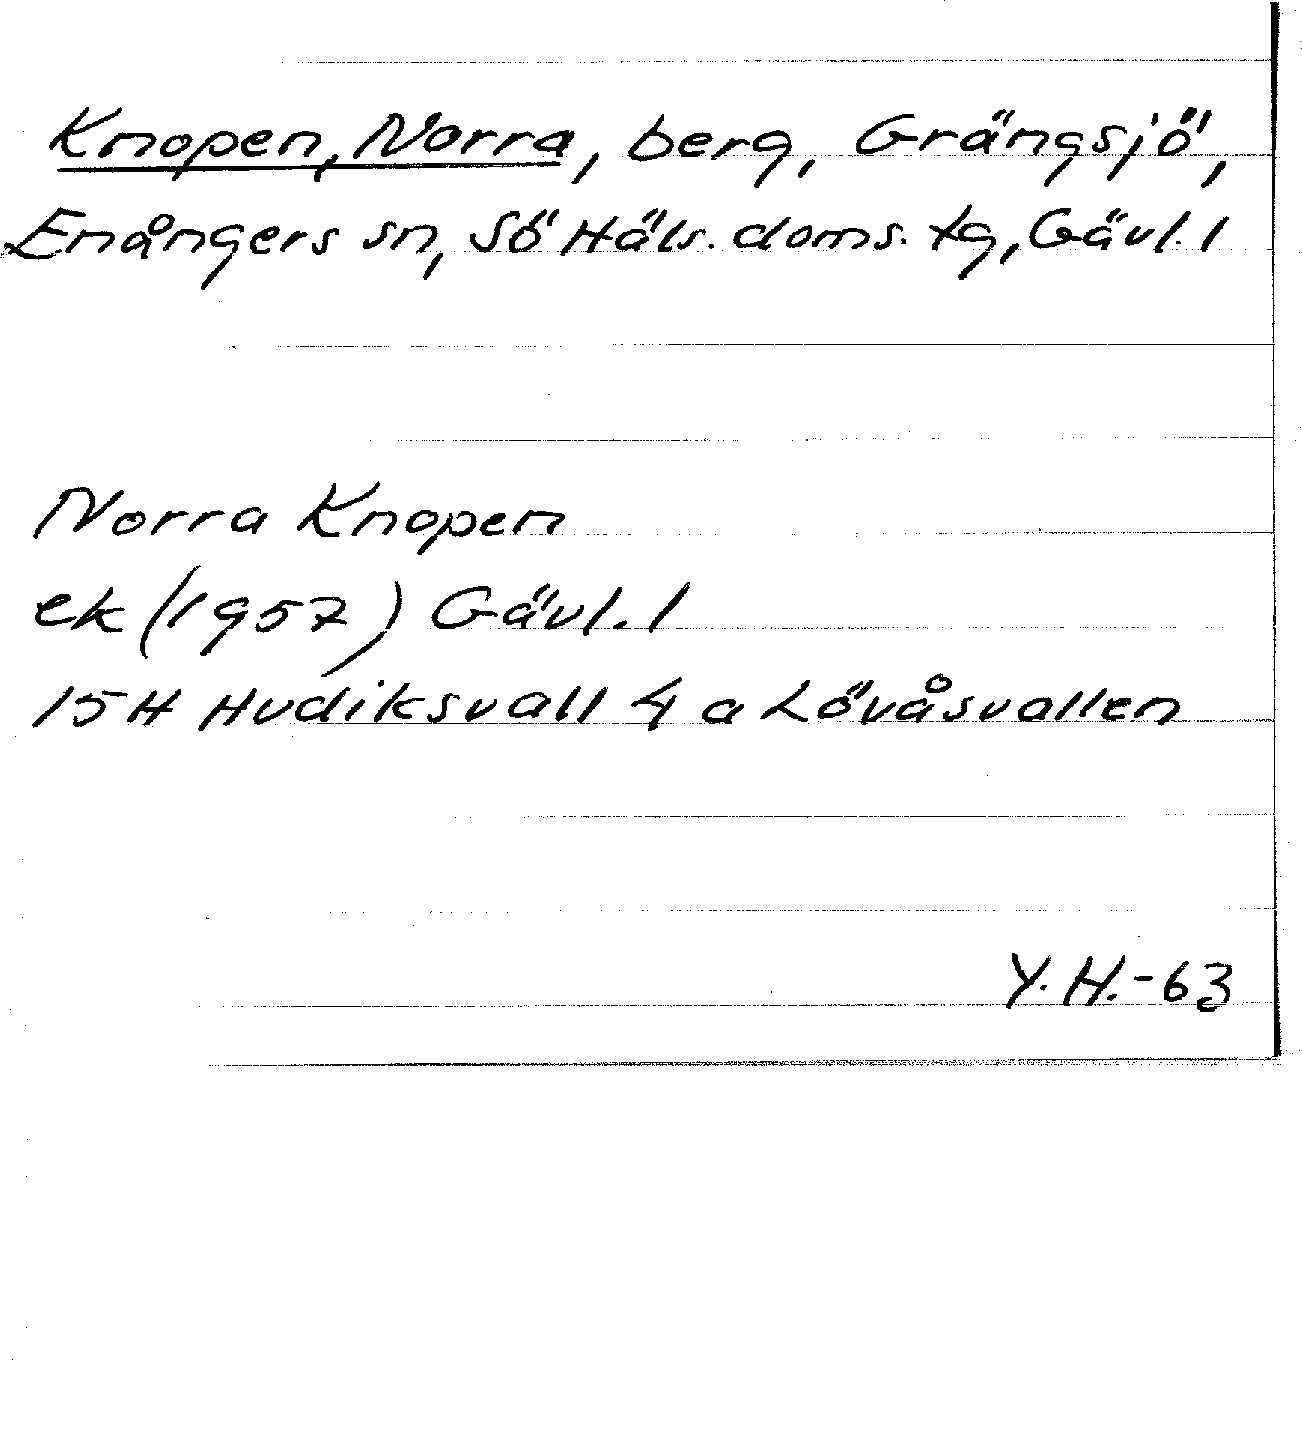 Knopen, Norra, berg, Grängsjö,
Enångers sn, Sö Häls. doms. tg, Gävl. l
Norra Knopen
ek (1957) Gävl. l
15 H Hudiksvall 4 a Lövåsvallen
Y. H. -63